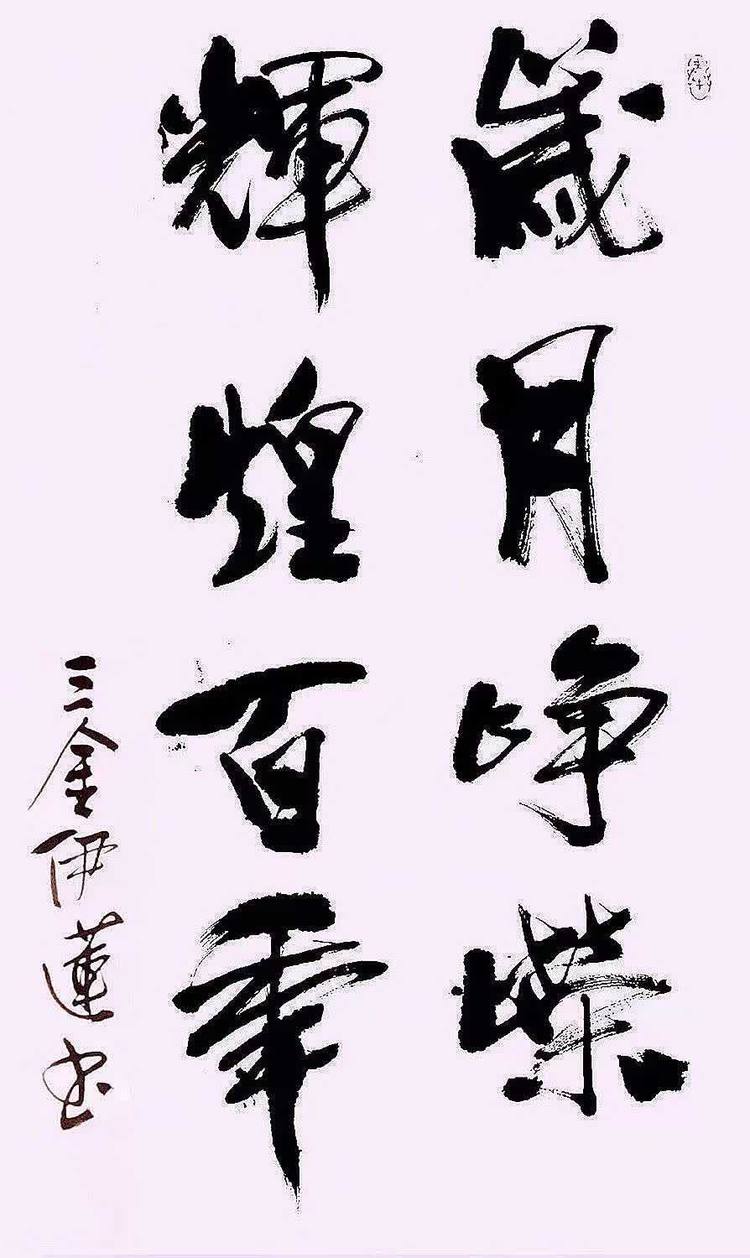 歲月崢嶸
輝煌百年
三金伊蓮书